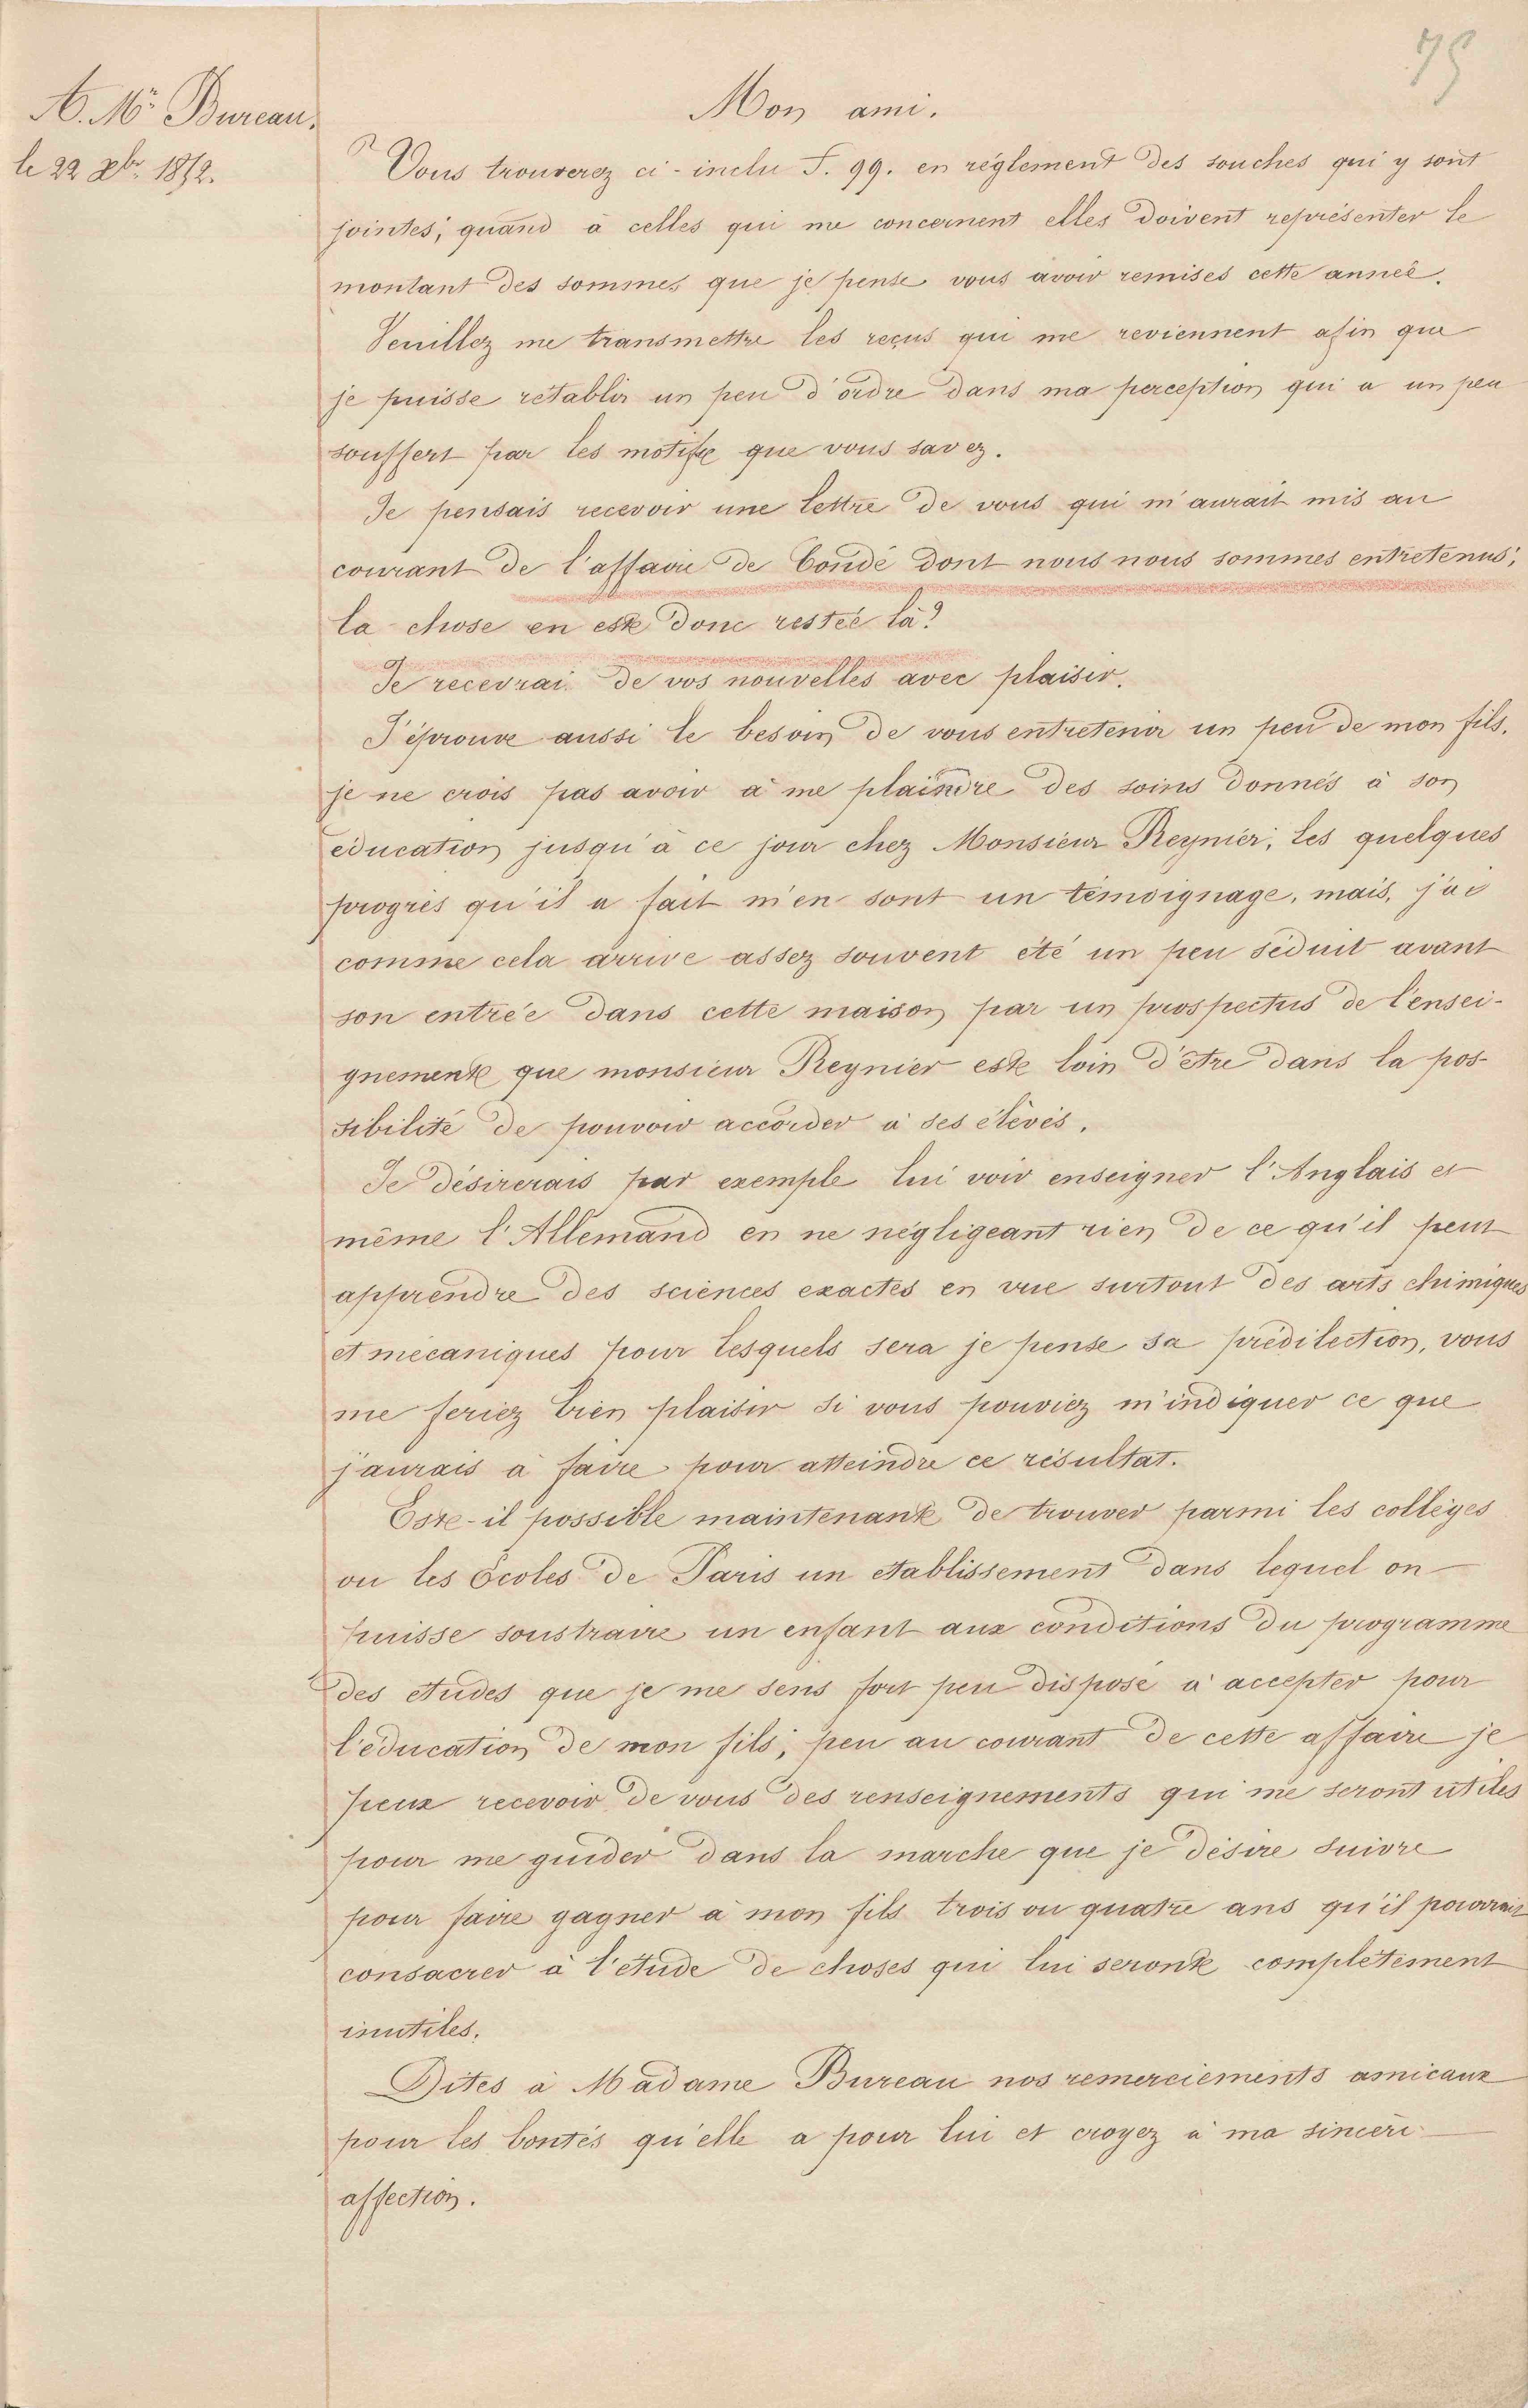 75
A. Mr Bureau.
le 22 xbr. 1852.
Mon ami.
Vous trouverez ci-inclu F. 99. en réglement des souches qui y sont
jointes; quand à celles qui me concernent elles doivent représenter le
montant des sommes que je pense vous avoir remises cette année.
Veuillez me transmettre les reçus qui me reviennent afin que
je puisse rétablir un peu d'ordre dans ma perception qui a un peu
souffert par les motifs que vous savez.
Je pensais recevoir une lettre de vous qui m'aurait mis au
courant de l'affaire de Condé dont nous nous sommes entretenus;
la chose en est donc restée là?
Je recevrai de vos nouvelles avec plaisir.
J'éprouve aussi le besoin de vous entretenir un peu de mon fils.
je ne crois pas avoir à me plaindre des soins donnés à son
éducation jusqu'à ce jour chez Monsieur Reynier; les quelques
progrès qu'il a fait m'en sont un témoignage, mais, j'ai
comme cela arrive assez souvent été un peu séduit avant
son entrée dans cette maison par un prospectus de l'ensei-
gnement que monsieur Reynier est loin d'être dans la pos-
sibilité de pouvoir accorder à ses élèves.
Je désirerais par exemple lui voir enseigner l'Anglais et
même l'Allemand en ne négligeant rien de ce qu'il peut
apprendre des sciences exactes en vue surtout des arts chimiques
et mécaniques pour lesquels sera je pense sa prédilection, vous
me feriez bien plaisir si vous pouviez m'indiquer ce que
j'aurais à faire pour atteindre ce résultat.
Est-il possible maintenant de trouver parmi les collèges
ou les Écoles de Paris un établissement dans lequel on
puisse soustraire un enfant aux conditions du programme
des études que je me sens fort peu disposé à accepter pour
l'éducation de mon fils; peu au courant de cette affaire je
peux recevoir de vous des renseignements qui me seront utiles
pour me guider dans la marche que je désire suivre
pour faire gagner à mon fils trois ou quatre ans qu'il pourrait
consacrer à l'étude de choses qui lui seront complètement
inutiles.
Dites à Madame Bureau nos remerciements amicaux
pour les bontés qu'elle a pour lui et croyez à ma sincère
affection.